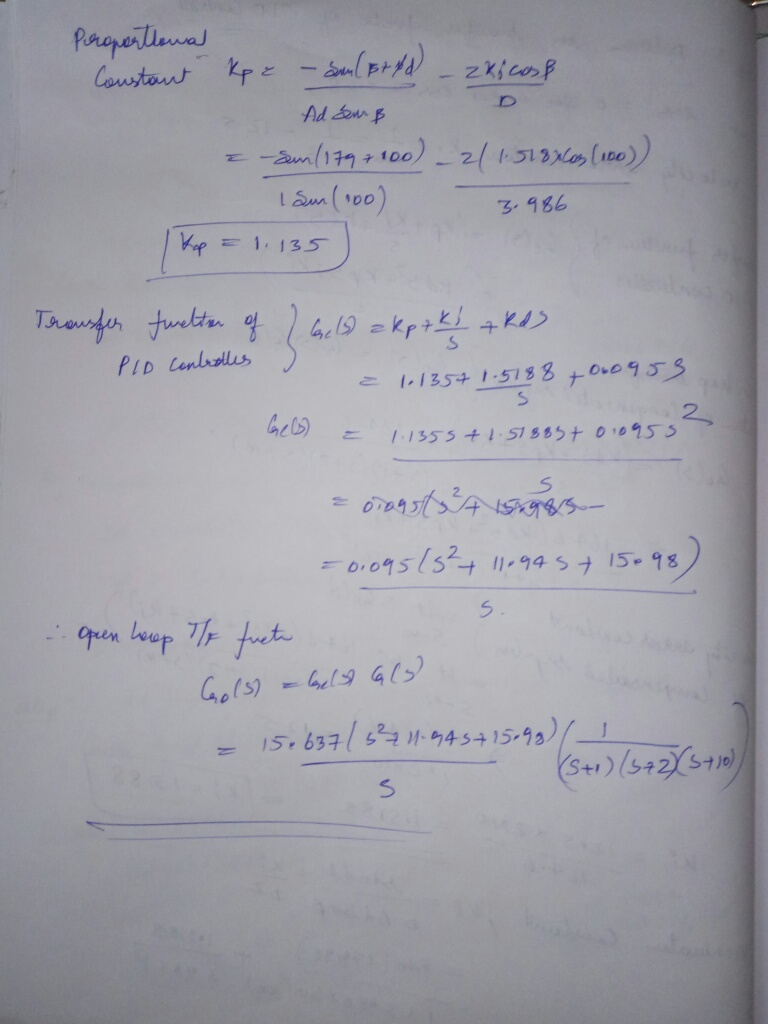 Proportional
Constant Kp = - Sin(β+φd) / Ad Sin β - 2Ki cosβ / D
= -Sin(179+100) / 1 Sin(100) - 2(1.518×Cos(100)) / 3.986
Kp = 1.135
Transfer function of PID Controller } Gc(s) = Kp + Ki/s + Kds
= 1.135+ 1.5188/s + 0.095s
Gc(s) = 1.135s + 1.5188s + 0.095s² / s
= 0.095(s² + 11.94s + 15.98) / s.
∴ open loop T/F functn
Go(s) = Gc(s) G(s)
= 15.637(s²+11.94s+15.98) / s (1 / (s+1)(s+2)(s+10))